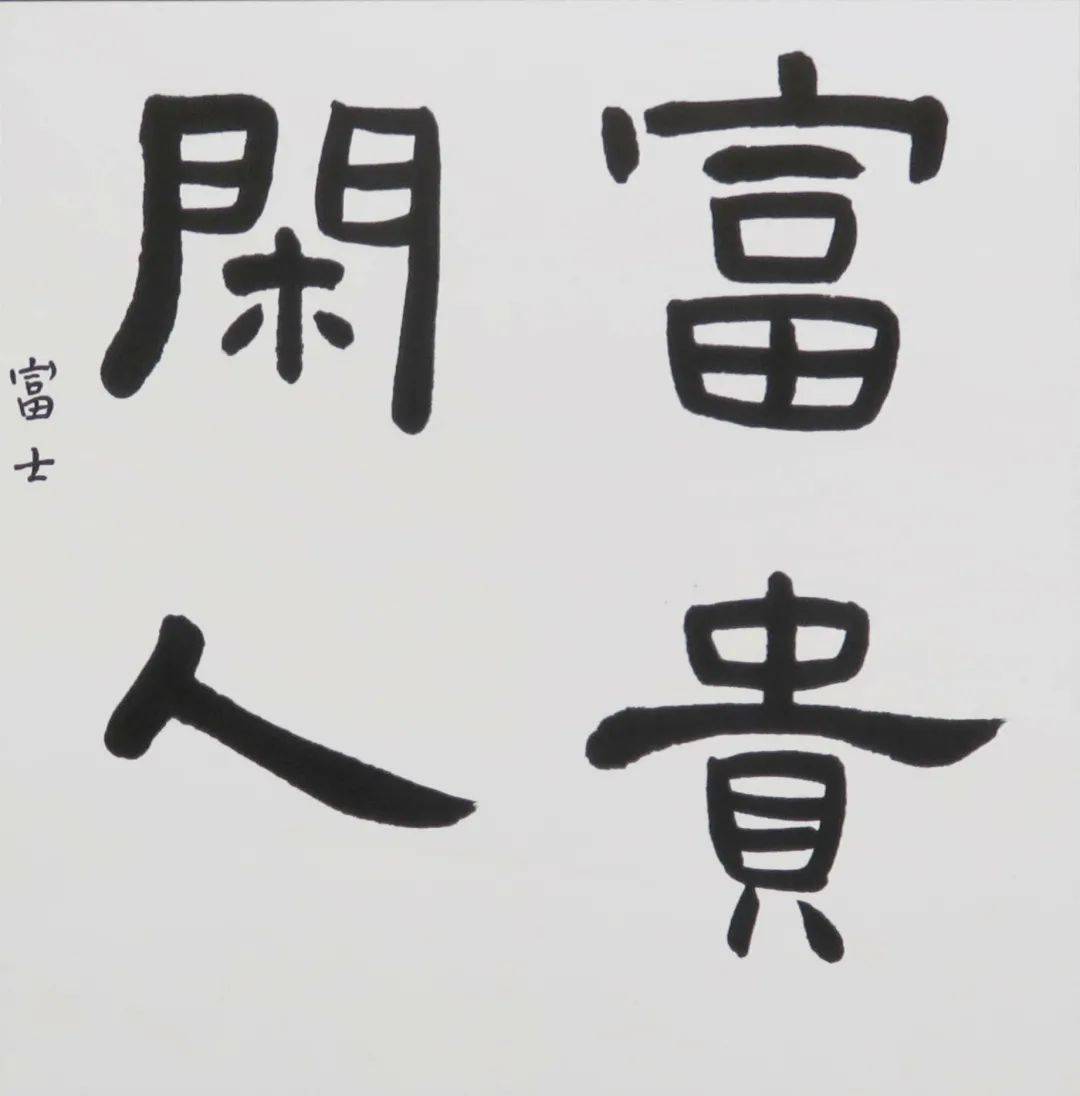 富貴
閑人
富士